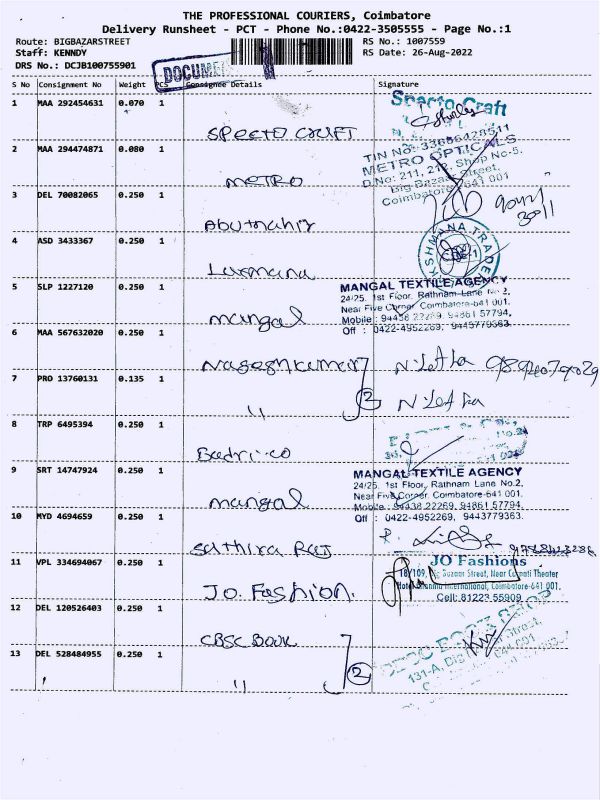 THE PROFESSIONAL COURIERS, Coimbatore
Delivery Runsheet - PCT - Phone No.:0422-3505555 - Page No.:1
Route: BIGBAZARSTREET RS No.: 1007559
Staff: KENNDY RS Date: 26-Aug-2022
DRS No.: DCJB100755901
DOCUME
S No Consignment No Weight PCS Consignee Details Signature
1 MAA 292454631 0.070 1
Sparto Craft
SPECTO CRAFT
TIN No: 33656428511
2 MAA 294474871 0.080 1
METRO OPTICALS
D.No: 211, 212, Shop No-5,
Big Bazaar Street,
Coimbatore - 641 001
METRO
3 DEL 70082065 0.250 1
Abutmahir
4 ASD 3433367 0.250 1
KSHMANA TRADE
Laxmana
5 SLP 1227120 0.250 1
MANGAL TEXTILE AGENCY
24/25, 1st Floor, Rathnam Lane No.2,
Near Five Corner, Coimbatore-641 001.
Mobile : 94438 22269, 94861 57794,
Off : 0422-4952269, 9443779363.
mangal
6 MAA 567632020 0.250 1
Nageshkumar Niletha
7 PRO 13760131 0.135 1
" 2 Niletha
8 TRP 6495394 0.250 1
Badri-co
9 SRT 14747924 0.250 1
MANGAL TEXTILE AGENCY
24/25, 1st Floor, Rathnam Lane No.2,
Near Five Corner, Coimbatore-641 001.
Mobile : 94438 22269, 94861 57794,
Off : 0422-4952269, 9443779363.
mangal
10 MYD 4694659 0.250 1
Sathiya Raj
11 VPL 334694067 0.250 1
JO Fashions
18/109, Big Bazaar Street, Near Carnati Theater
International, Coimbatore-641 001.
Cell: 81223 55909
Jo. Fashion.
12 DEL 120526403 0.250 1
CBSC BOOK
BOOK SHOP
131-A,
13 DEL 528484955 0.250 1
" 2